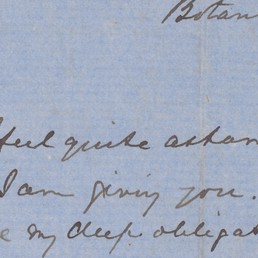 Botan
feel quite asham
I am giving you.
e my deep obligat